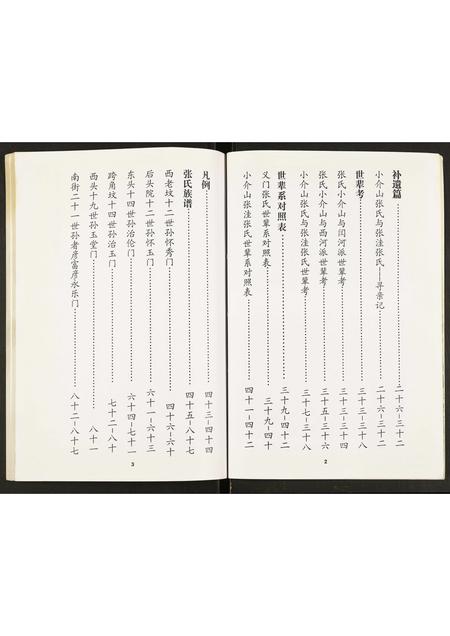 补遗篇……二十六-三十二
小介山张氏与张洼张氏——寻亲记……二十六-三十二
世辈考……三十三-三十八
张氏小介山与闫河派世辈考……三十三-三十四
张氏小介山与西河派世辈考……三十五-三十六
小介山张氏与张洼张氏世辈考……三十七-三十八
世辈系对照表……三十九-四十二
义门张氏世辈系对照表……三十九-四十
小介山张洼张氏世辈系对照表……四十一-四十二
2
凡例……四十三-四十四
张氏族谱……四十五-八十七
西老坟十二世孙怀秀门……四十六-六十
后头院十二世孙怀玉门……六十一-六十三
东头十四世孙治伦门……六十四-七十一
跨角坟十四世孙治玉门……七十二-八十
西头十九世孙玉堂门……八十一
南街二十一世孙者彦富彦永乐门……八十二-八十七
3